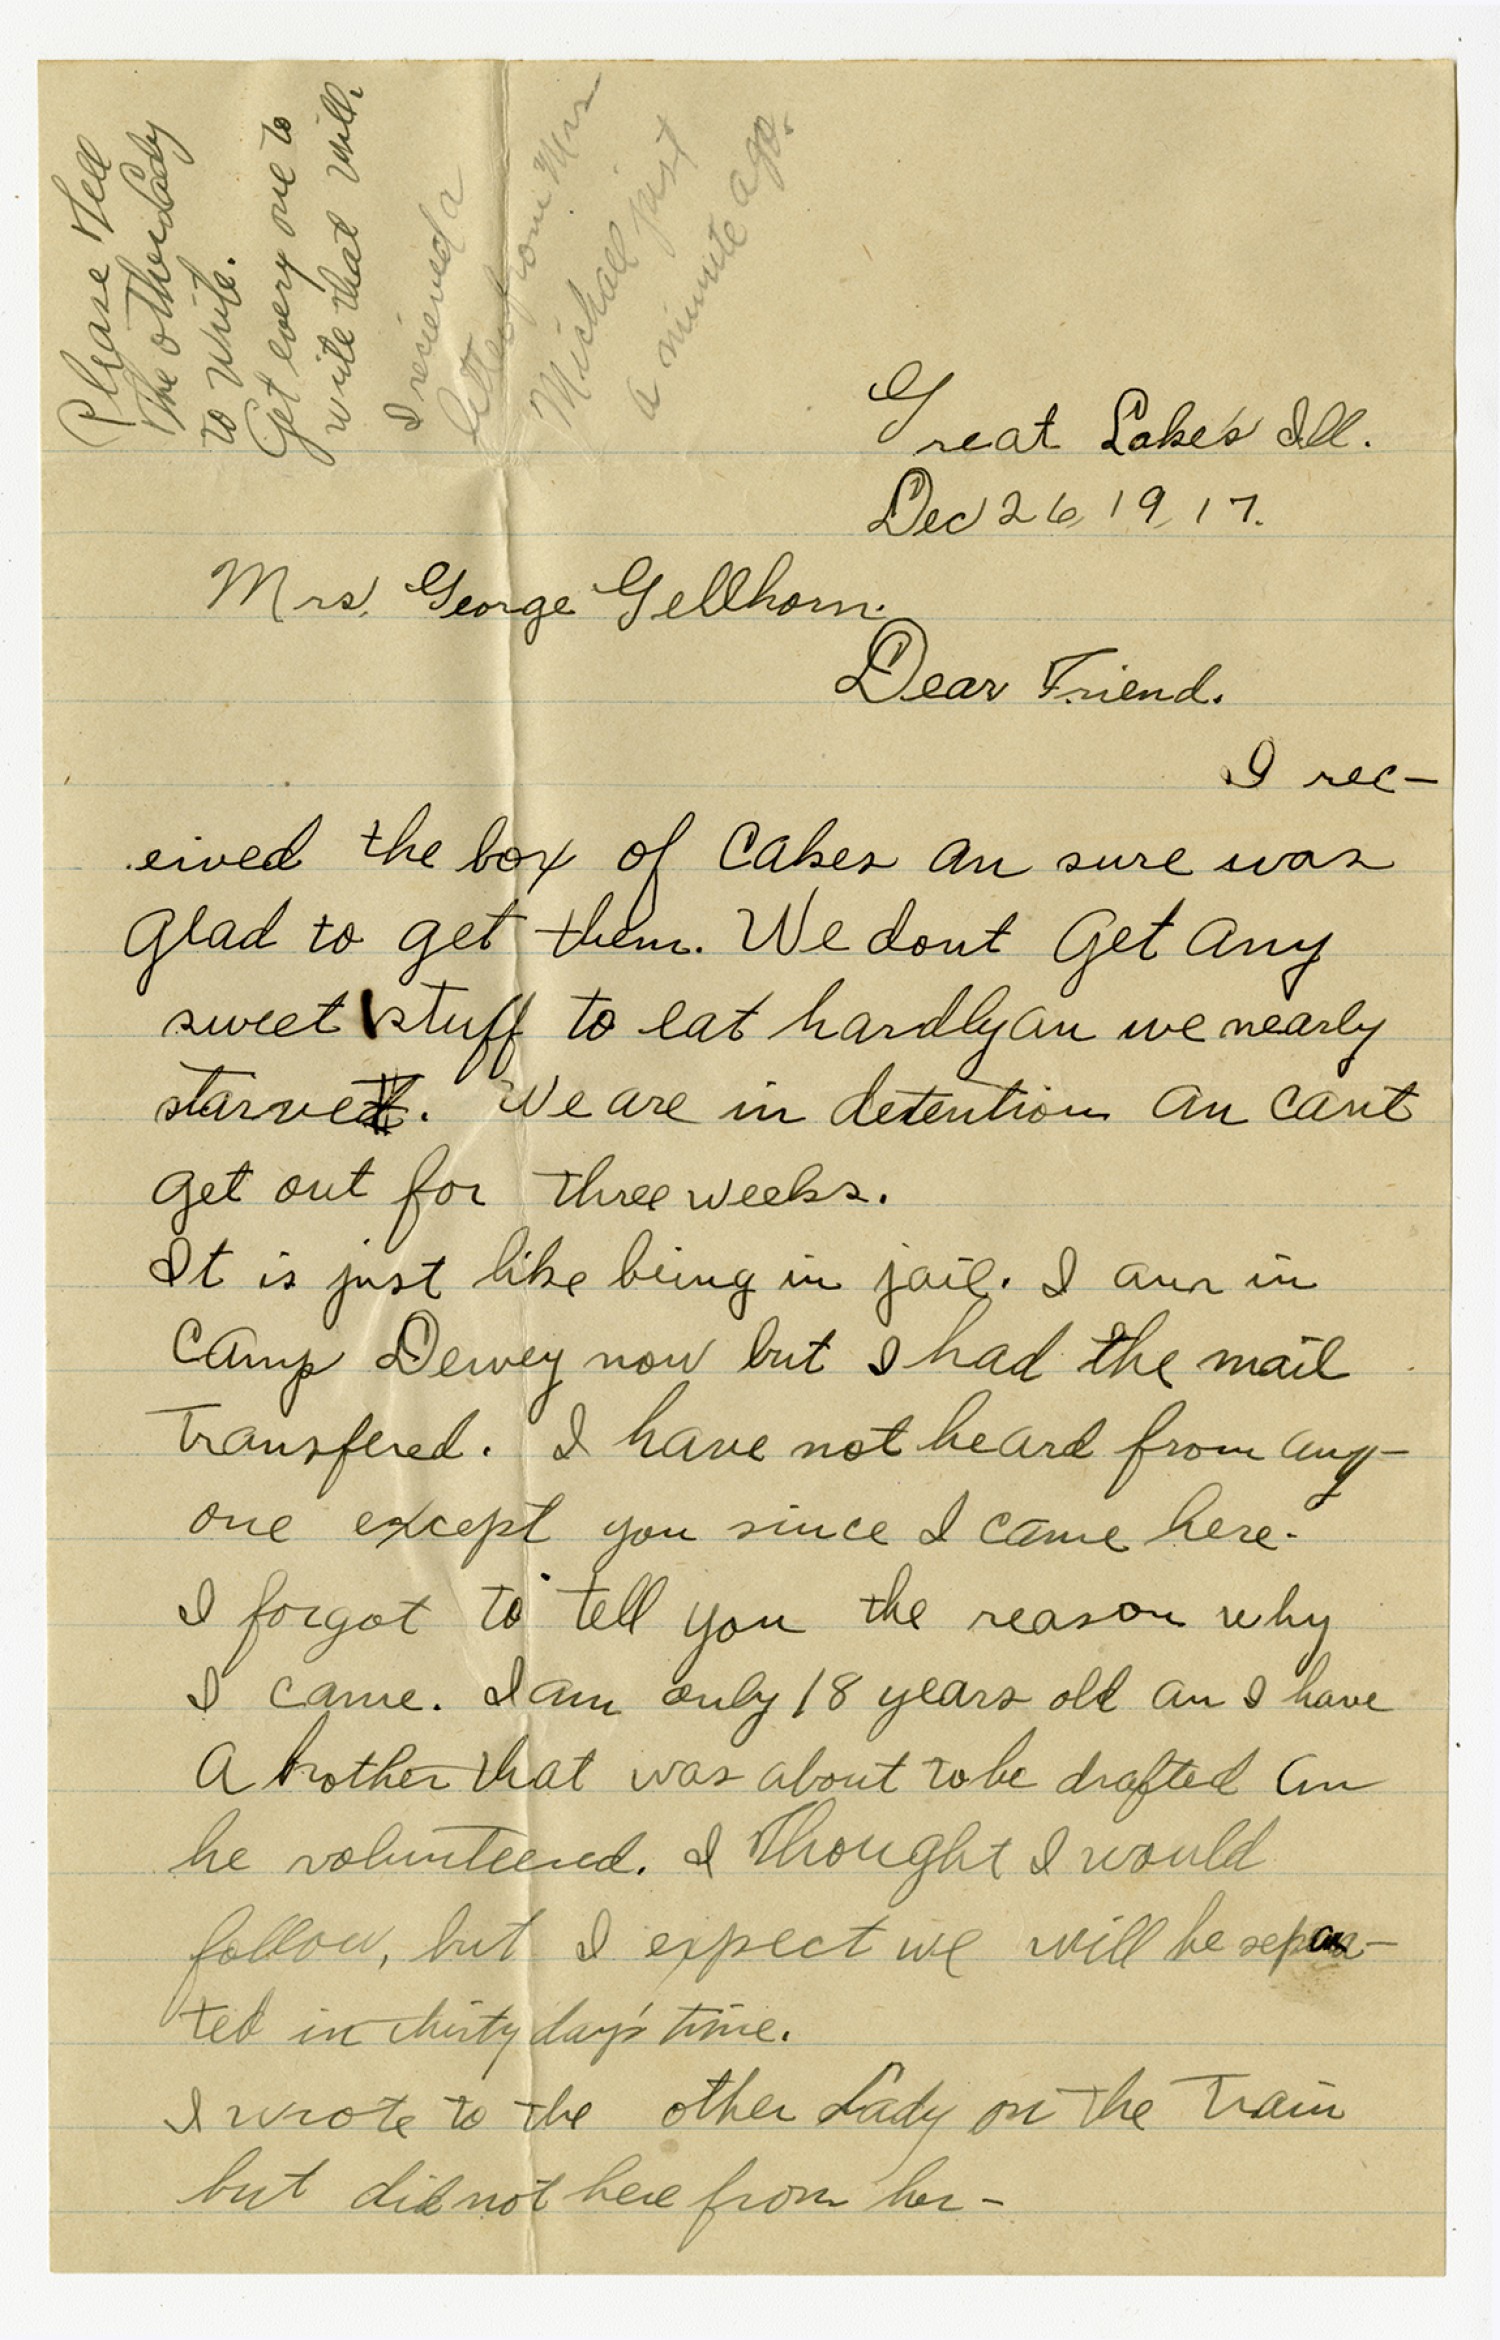 Please tell
the other Lady
to write.
Get every one to
write that will.
I recieved a
letter from Mrs
Michall just
a minute ago.
Great Lake's Ill.
Dec 26, 19,17.
Mrs, George Gellhorn.
Dear Friend.
I rec-
eived the box of cakes an sure was
glad to get them. We dont get any
sweet stuff to eat hardly an we nearly
starve. We are in detention an cant
get out for three weeks.
It is just like being in jail. I am in
Camp Dewey now but I had the mail
transfered. I have not heard from any-
one except you since I came here.
I forgot to tell you the reason why
I came. I am only 18 years old an I have
a brother that was about to be drafted an
he volunteered. I thought I would
follow, but I expect we will be separa-
ted in thirty day's time.
I wrote to the other Lady on the train
but did not here from her-